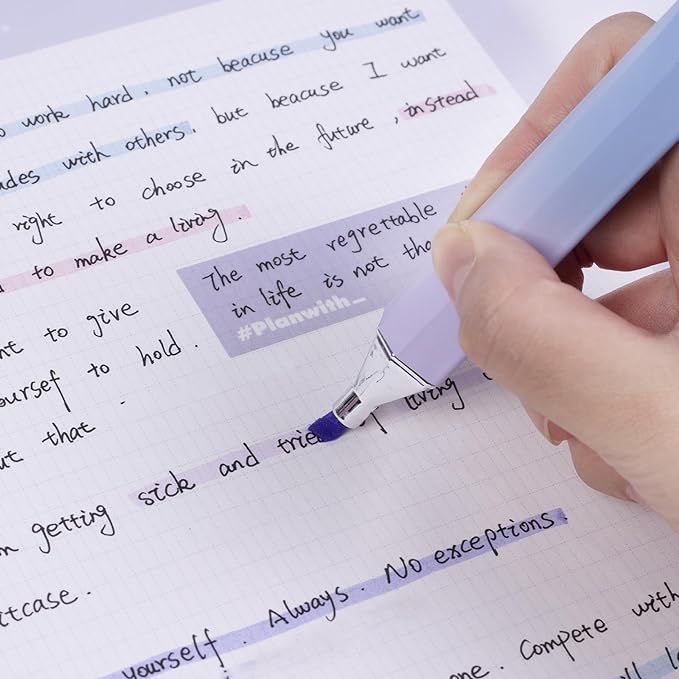 work hard, not beacuse you want
with others, but beacuse I want
right to choose in the future, instead
to make a living.
The most regrettable
in life is not
#Planwith_
to give
yoursef to hold.
that.
getting sick and living
yourself. Always. No exceptions.
Compete with